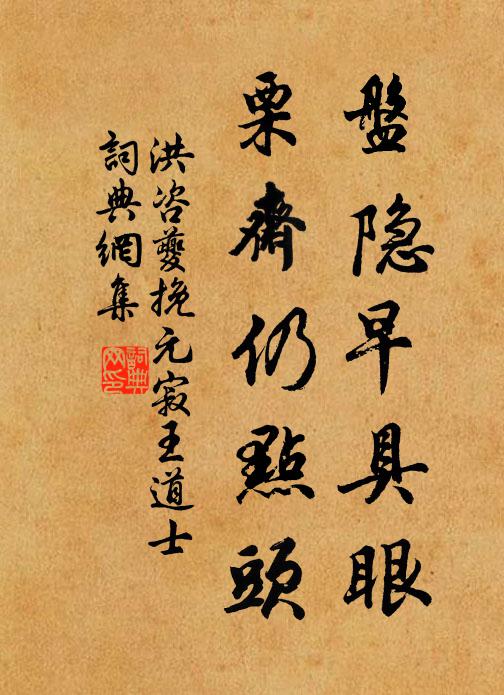 盤隐早具眼
栗齋仍點頭
洪咨夔挽元寂王道士
詞典網集
詞典
网印